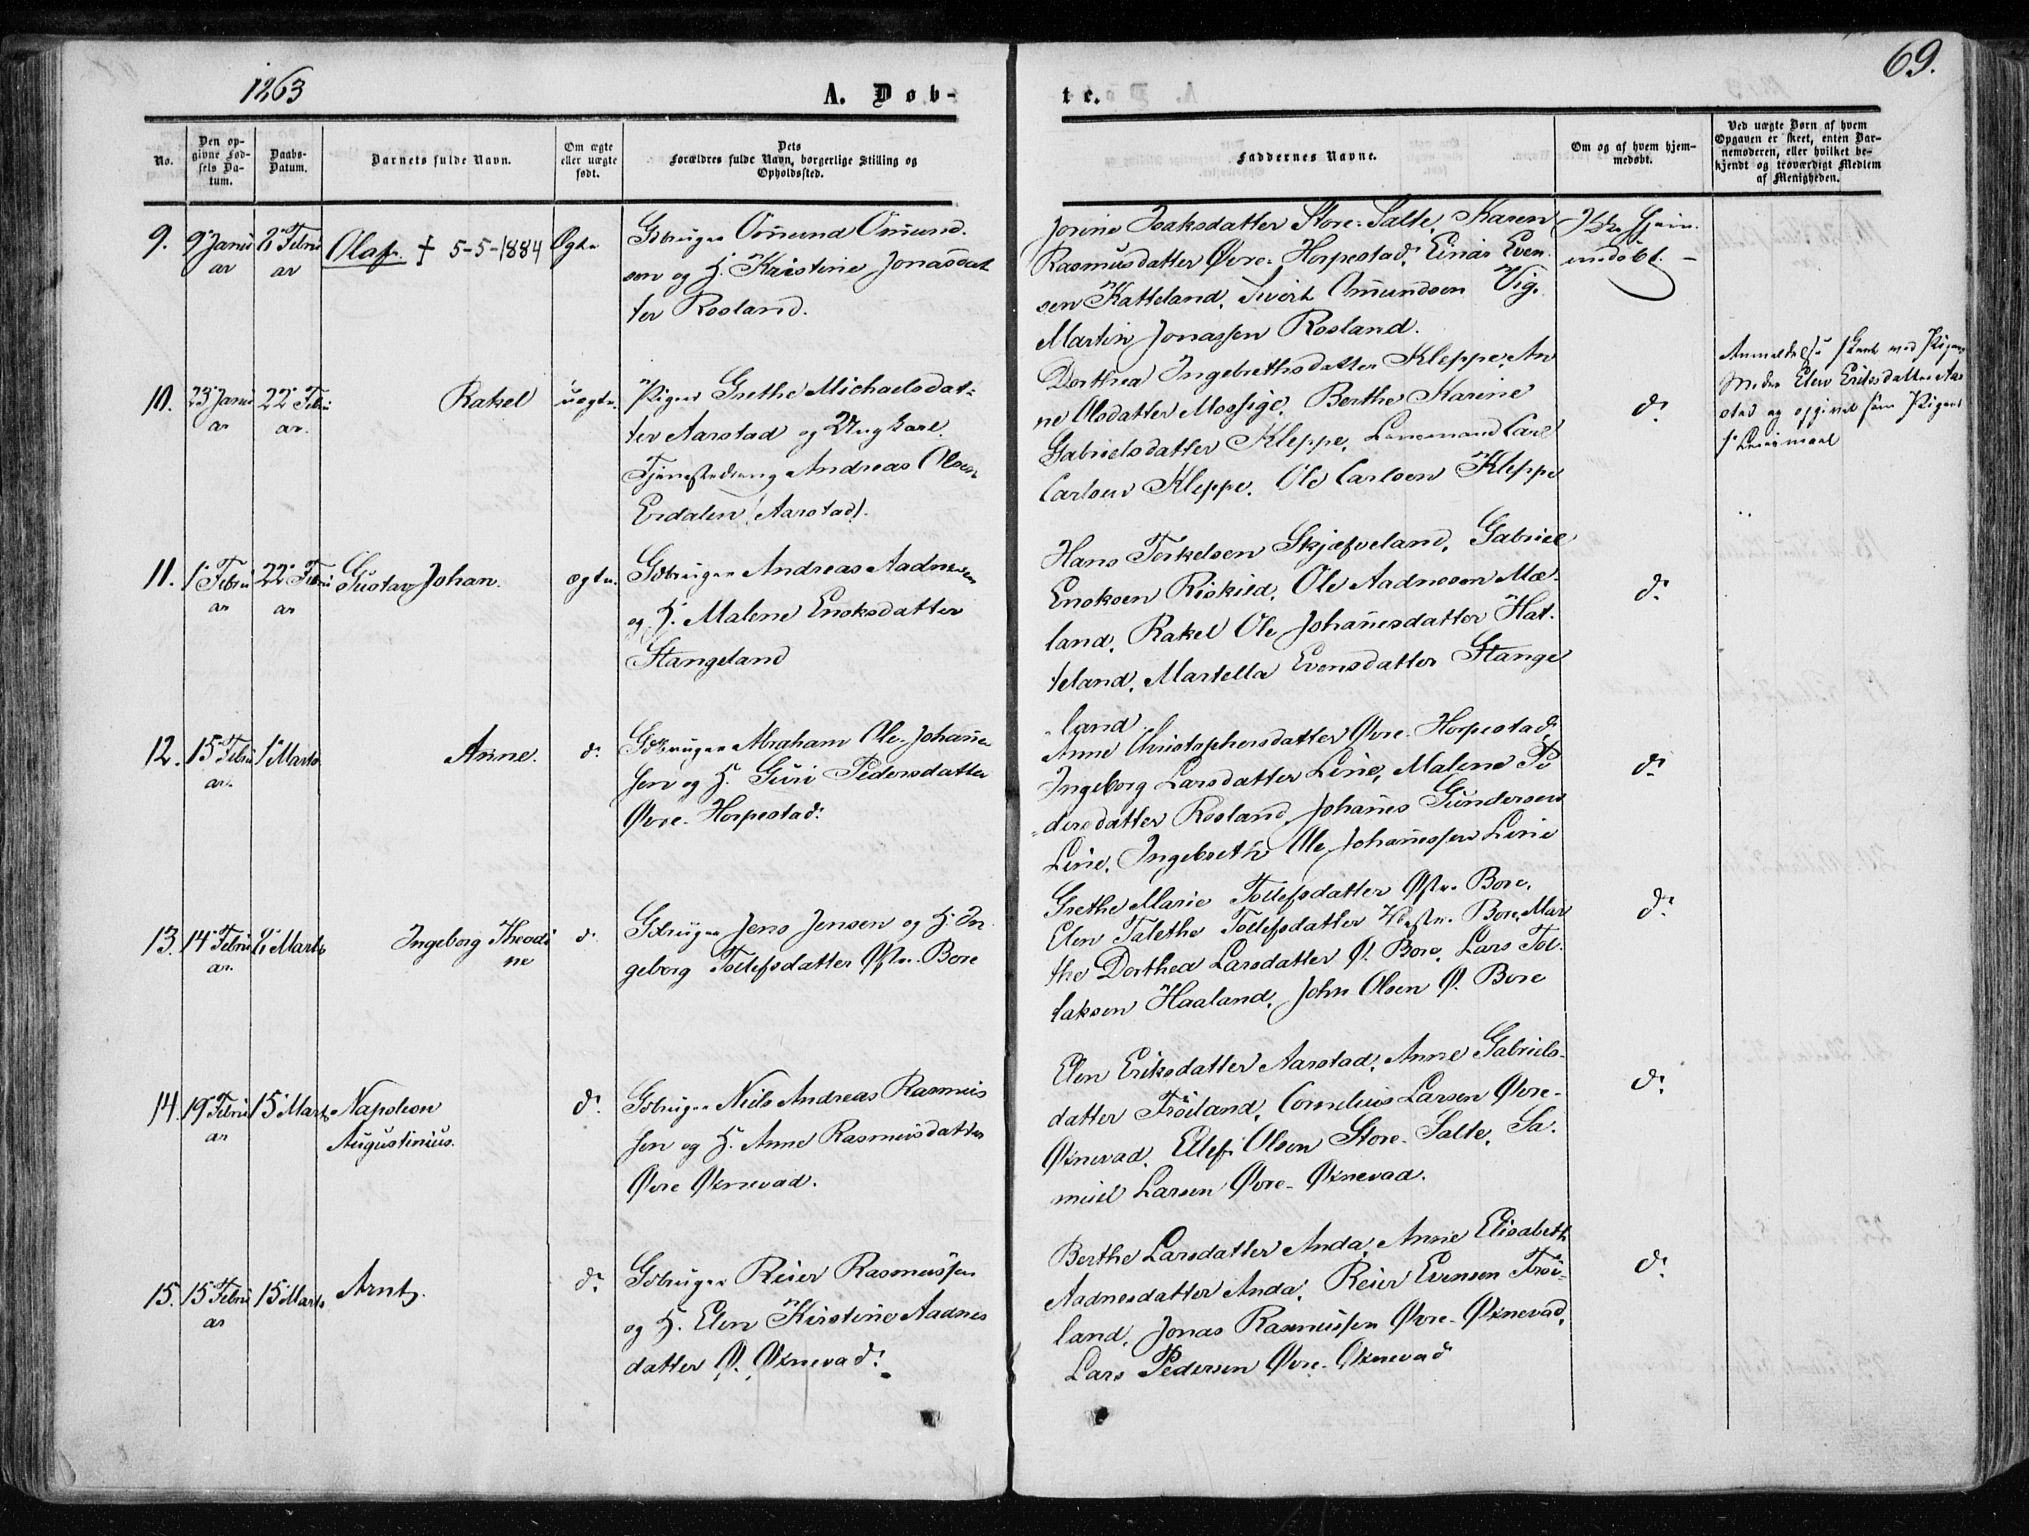 1863
A. Døb-
te.
69.
No.
Den op-
givne Fød-
sels Da-
tum.
Daabs-
Datum.
Barnets fulde Navn.
Om ægte
eller uægte
født.
Dets
Forældres fulde Navn, borgerlige Stilling og
Opholdssted.
Faddernes Navne.
Om og af hvem hjem-
medøbt.
Ved uægte Børn af hvem
Opgaven er skeet, enten Bar-
nemoderen, eller hvilket be-
kjendt og troværdigt Medlem
af Menigheden.
9.
9 Janu
ar
2 Febru
ar
Olaf. † 5-5-1884
Ægte
Gbruger Omund Omund-
sen og H. Kristine Jonasdat
ter Rosland.
Jorine Isaksdatter Store-Salte, Karen
Rasmusdatter Øvre-Horpestad, Einar Even
sen Katteland, Sivert Omundsen Vig,
Martin Jonassen Rosland.
Ikke hjem-
medøbt.
10.
23 Janu
ar
22 Febru
ar.
Rakel
uægte.
Pigen Grethe Michaelsdat-
ter Aarstad og Ungkarl
Tjenestedreng Andreas Olsen
Erdalen (Aarstad).
Dorthea Ingebrethsdatter Kleppe, An
ne Olsdatter Mossige, Berthe Karine
Gabrielsdatter Kleppe, Lensmand Carl
Carlsen Kleppe, Ole Carlsen Kleppe
do
Anmeldelse skeet ved Pigens
Moder Elen Eriksdatter Aar
stad og opgivet som Pigens
1ste Leiermaal
11.
1 Febru
ar
22 Febru
ar
Gustav Johan.
ægte.
Gbruger Andreas Aadnesen
og H. Malene Enoksdatter
Stangeland
Hans Torkelsen Skjæfveland, Gabriel
Enoksen Riskild, Ole Aadnesen Mæ-
land, Rakel Ole Johannesdatter Hat-
teland, Martella Evensdatter Stange
land.
do
12.
15 Febru
ar.
1 Marts
Anne.
do
Gbruger Abraham Ole Johanne
sen og H. Guri Pedersdatter
Øvre-Horpestad.
Anne Christophersdatter Øvre-Horpestad,
Ingeborg Larsdatter Line, Malene Pe
dersdatter Rosland, Johannes Gundersen
Line, Ingebreth Ole Johannessen Line
do
13.
14 Febru
ar.
2 Marts
Ingeborg Theodi
ne
do
Gbruger Jens Jensen og H. In
geborg Tollefsdatter Østre-Bore
Grethe Marie Tollefsdatter Østre Bore,
Elen Talethe Tollefsdatter Vestre Bore, Mar
the Dorthea Larsdatter Ø. Bore, Lars Tol-
laksen Haaland, John Olsen Ø. Bore
do
14.
19 Febru
ar
15 Marts
Napoleon
Augustinius.
do
Gbruger Niels Andreas Rasmus
sen og H. Anne Rasmusdatter
Øvre Øxnevad.
Elen Eriksdatter Aarstad, Anne Gabriels-
datter Frøiland, Cornelius Larsen Øvre-
Øxnevad, Ellef Olsen Store-Salte, Sa-
muel Larsen Øvre-Øxnevad.
do
15.
15 Febru
ar
15 Marts
Arnt.
do
Gbruger Reier Rasmussen
og H. Elen Kirstine Aadnes
datter Ø. Øxnevad.
Berthe Larsdatter Anda, Anne Elisabeth
Aadnesdatter Anda, Reier Evensen Frøi-
land, Jonas Rasmussen Øvre-Øxnevad,
Lars Pedersen Øvre-Øxnevad
do